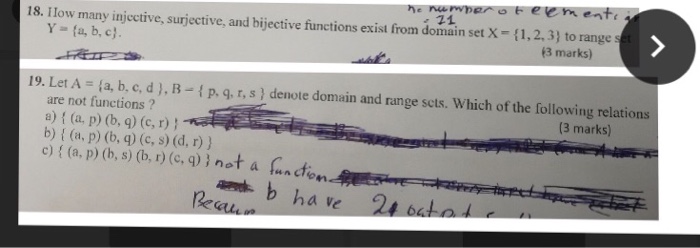 he number of elements
21
18. How many injective, surjective, and bijective functions exist from domain set X = {1, 2, 3} to range set
Y = {a, b, c}.
(3 marks)
19. Let A = {a, b, c, d }, B - { p, q, r, s } denote domain and range sets. Which of the following relations
are not functions ?
(3 marks)
a) { (a, p) (b, q) (c, r) }
b) { (a, p) (b, q) (c, s) (d, r) }
c) { (a, p) (b, s) (b, r) (c, q) } not a function
b have 2